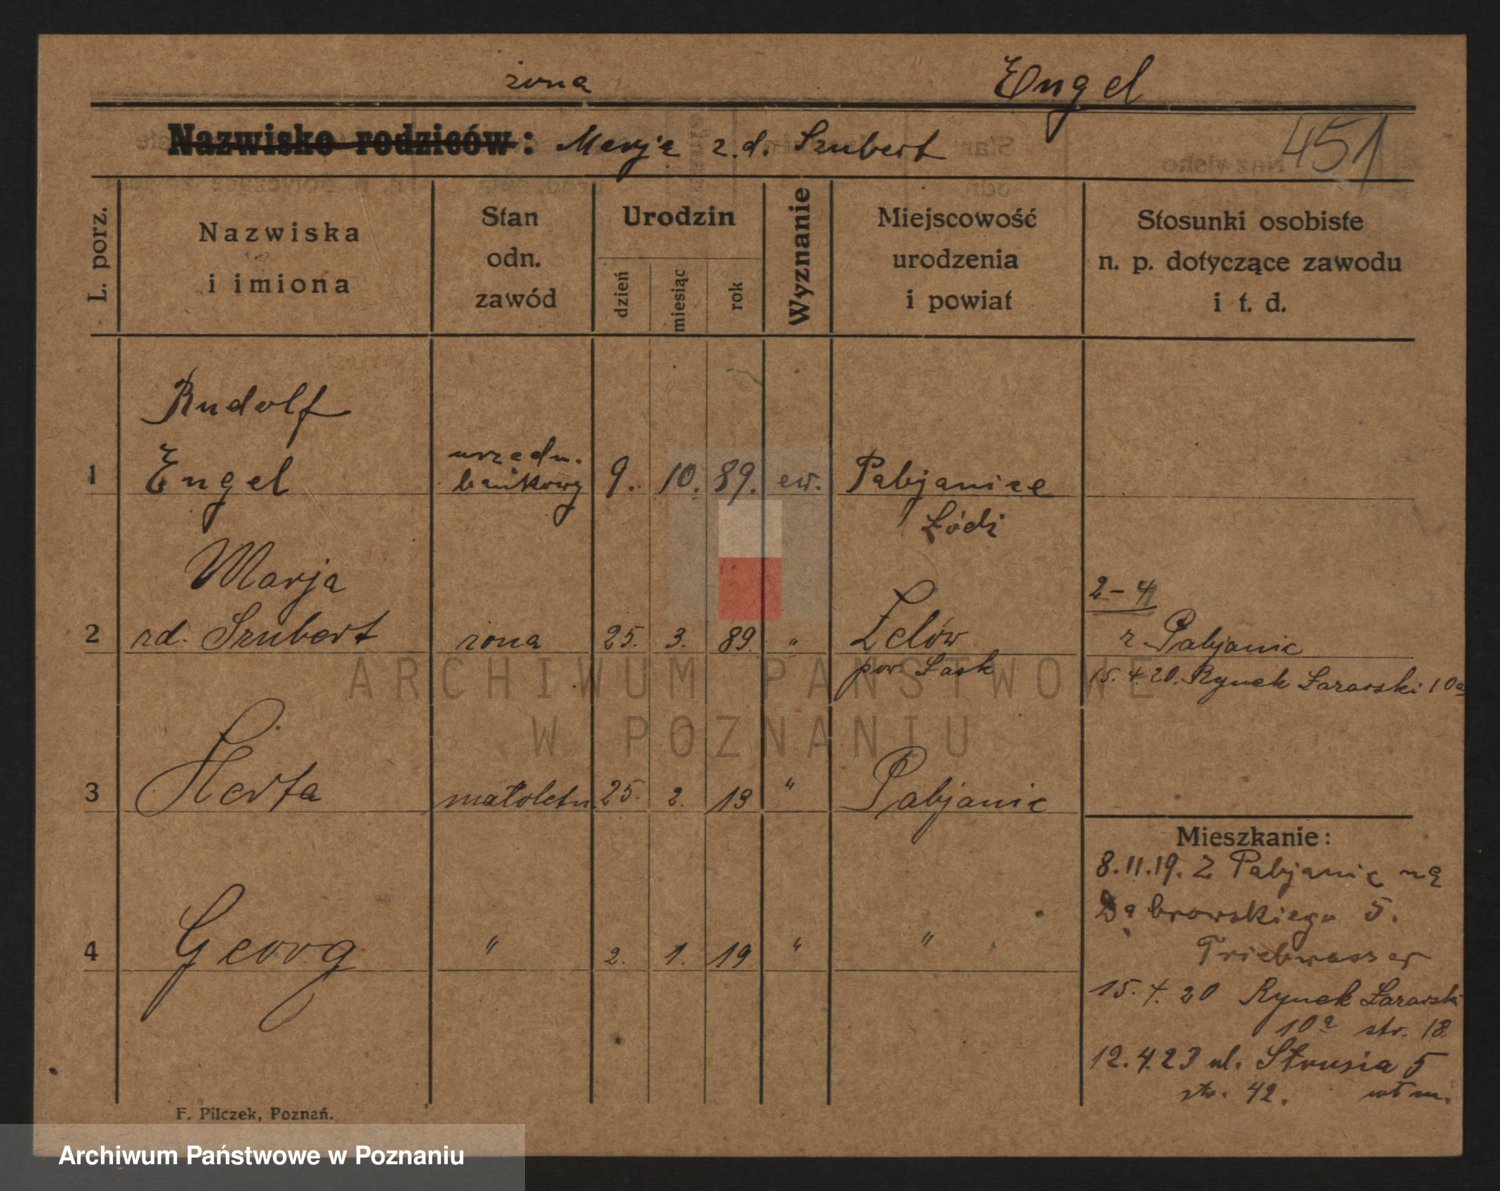 żona Engel
Nazwisko rodziców: Marja z. d. Szubert
451
L. porz.
Nazwiska
i imiona
Stan
odn.
zawód
Urodzin
dzień
miesiąc
rok
Wyznanie
Miejscowość
urodzenia
i powiat
Stosunki osobiste
n. p. dotyczące zawodu
i t. d.
Rudolf
1 Engel urzędn. bankowy 9. 10. 89. ew. Pabjanice
Łódź
Marja
2 zd. Szubert żona 25. 3. 89. " Zelów
pow. Łask
2-4
z Pabjanic
15. 4 20. Rynek Łazarski 10a
3 Herta małoletn. 25. 2. 13 " Pabjanic
4 Georg " 2. 1. 19 " "
Mieszkanie:
8.11.19. Z Pabjanic na
Dąbrowskiego 5.
Triebwasser
15. 4. 20 Rynek Łazarski
10a str. 18.
12.4.23 ul. Strusia 5
str. 42. wł m.
F. Pilczek, Poznań.
ARCHIWUM PAŃSTWOWE
W POZNANIU
Archiwum Państwowe w Poznaniu